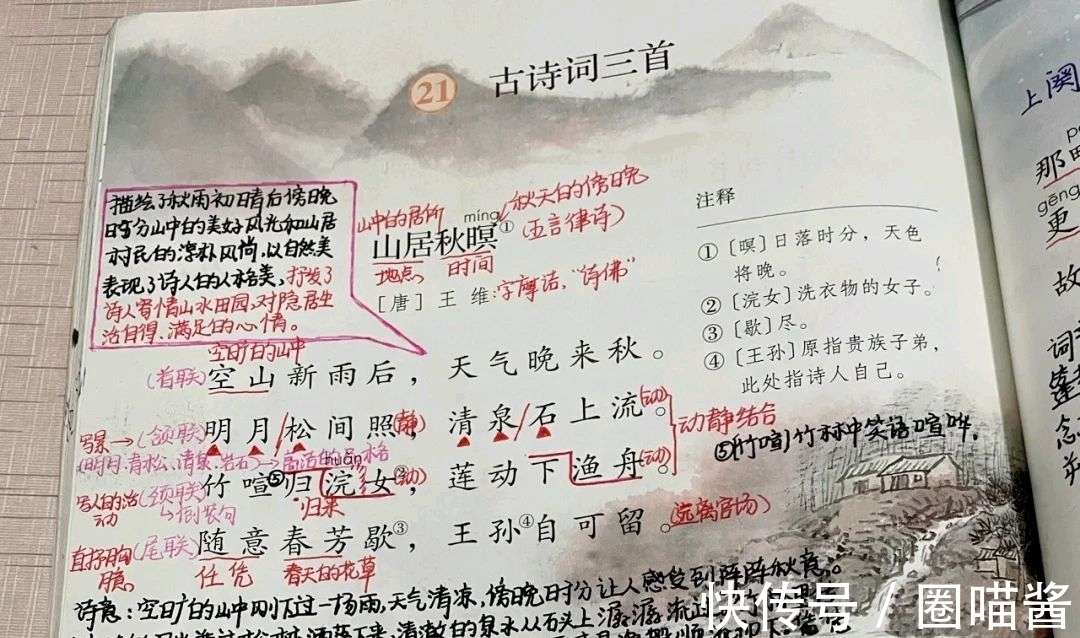 21 古诗词三首
描绘了秋雨初晴后傍晚
时分山中的美好风光和山居
村民的淳朴风尚,以自然美
表现了诗人的人格美,抒发了
诗人寄情山水田园,对隐居生
活自得、满足的心情。
山中的居所
míng
秋天的傍晚
(五言律诗)
山居秋暝①
地点
时间
[唐] 王维:字摩诘,“诗佛”
注释
①〔暝〕日落时分,天色
将晚。
②〔浣女〕洗衣物的女子。
③〔歇〕尽。
④〔王孙〕原指贵族子弟,
此处指诗人自己。
⑤(竹喧)竹林中笑语喧哗。
空旷的山中
(首联)空山新雨后,天气晚来秋。
写景→(颔联)明月/松间照,(静)清泉/石上流。(动)
动静结合
(明月、青松、清泉、岩石)→高洁的品格
huàn
写人的活动(颈联)竹喧⑤归浣女②,(动)莲动下渔舟。(动)
↳倒装句
归来
直抒胸臆(尾联)随意春芳歇③,王孙④自可留。(远离官场)
任凭
春天的花草
诗意:空旷的山中刚下过一场雨,天气清凉,傍晚时分让人感受到阵阵秋意。
上阕
那
gēng
更
故
词
念
快传号 / 圈喵酱